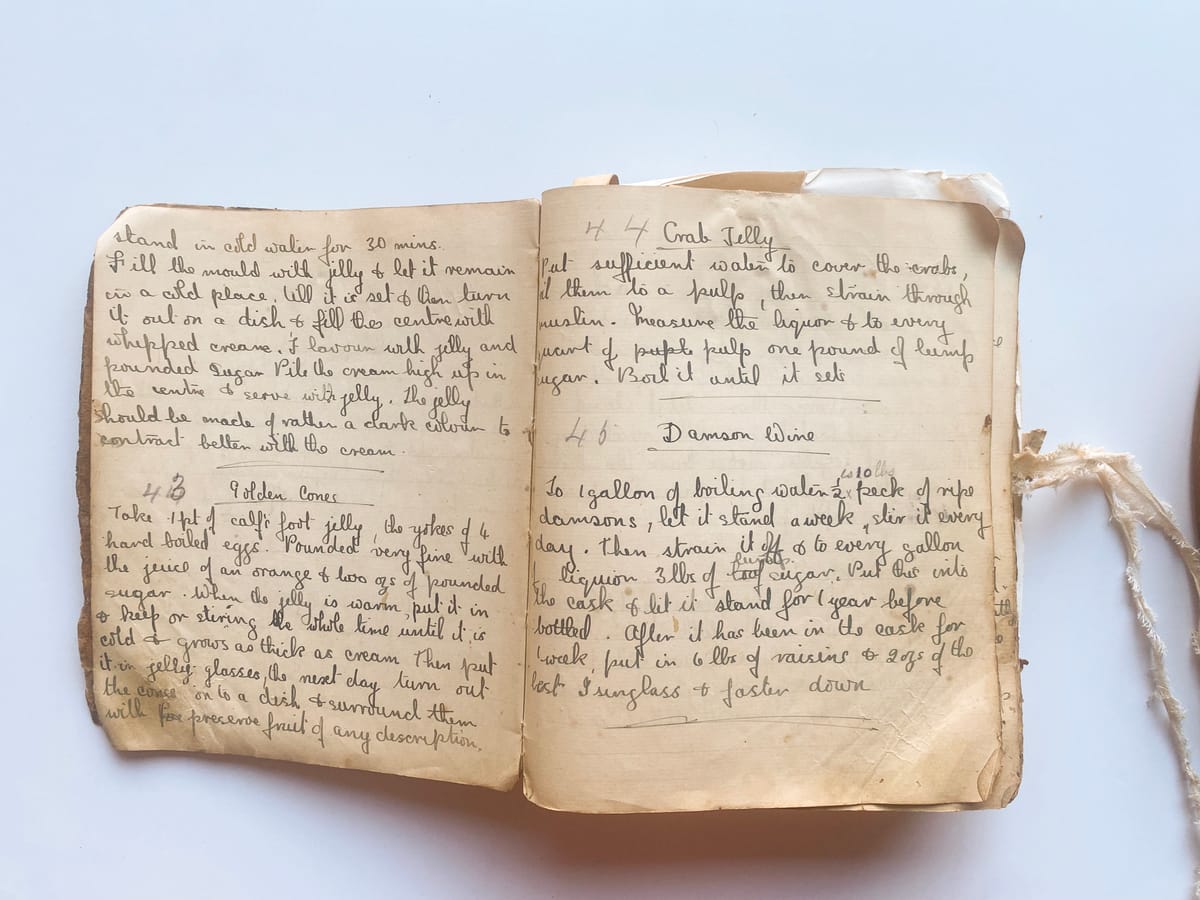 stand in cold water for 30 mins.
Fill the mould with jelly & let it remain
in a cold place, till it is set & then turn
it out on a dish & fill the centre with
whipped cream. Flavour with jelly and
pounded sugar Pile the cream high up in
the centre & serve with jelly. The jelly
should be made of rather a dark colour to
contract better with the cream.
43 Golden Cones
Take 1pt of calf's foot jelly, the yokes of 4
hard boiled eggs. Pounded very fine with
the juice of an orange & two ozs of pounded
sugar. When the jelly is warm, put it in
& keep or stiring the whole time until it is
cold & grows as thick as cream Then put
it in jelly glasses, the next day turn out
the cones on to a dish & surround them
with preserve fruit of any description.
44 Crab Jelly
Put sufficient water to cover the crabs,
il them to a pulp, then strain through
muslin. Measure the liquor & to every
quart of pulp one pound of lump
sugar. Boil it until it sets
45 Damson Wine
10 lbs
To 1 gallon of boiling water ½ peck of ripe
damsons, let it stand a week, stir it every
day. Then strain it off & to every gallon
liquior 3lbs of loaf sugar. Put this into
the cask & let it stand for 1 year before
bottled. After it has been in the cask for
1 week, put in 6 lbs of raisins & 2 ozs of the
best Isinglass & fasten down